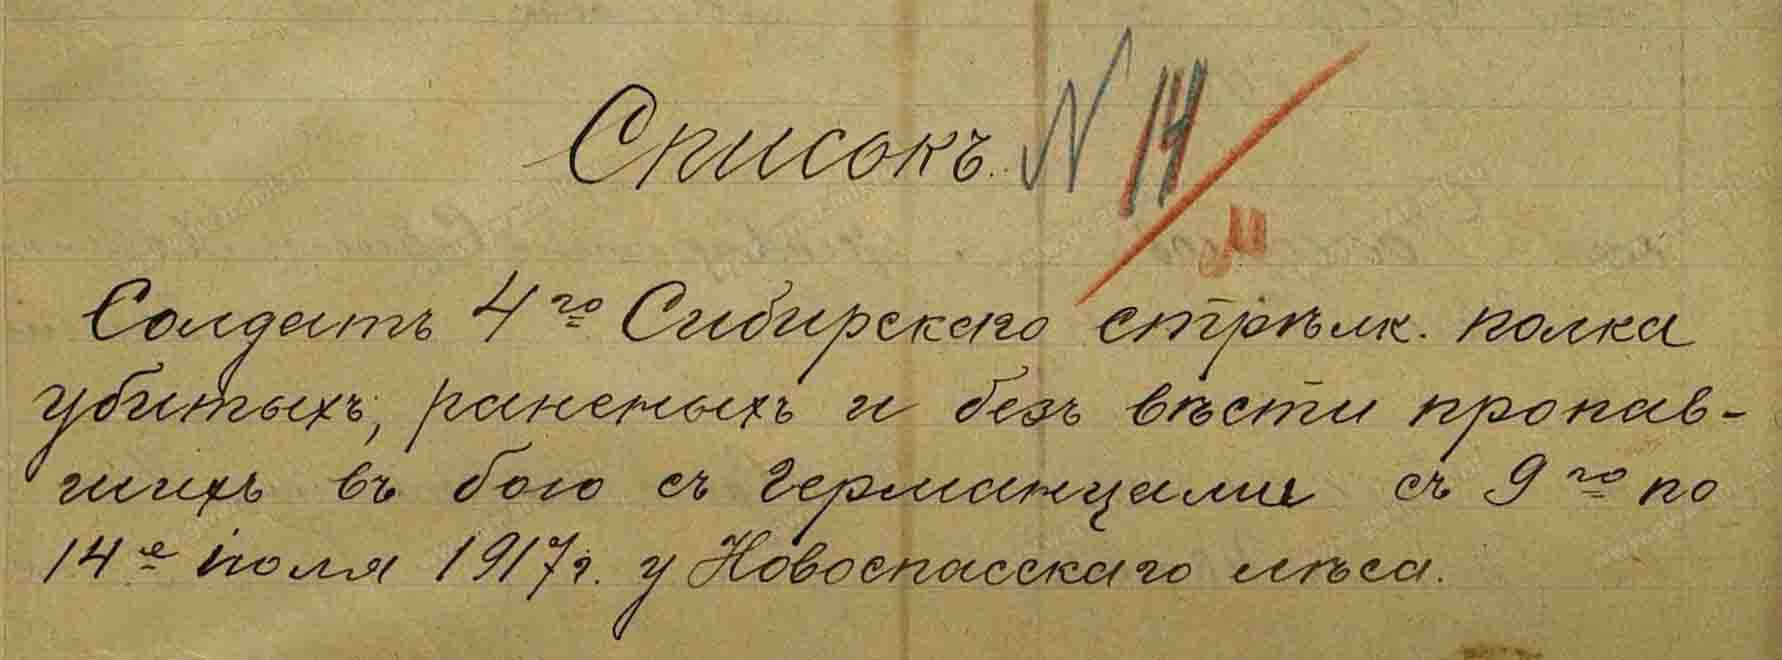 Списокъ. N 14
Солдатъ 4го Сибирскаго стрѣлк. полка
убитыхъ, раненыхъ и безъ вѣсти пропав-
шихъ въ бою съ Германцами съ 9го по
14е іюля 1917 г. у Новоспасскаго лѣса.